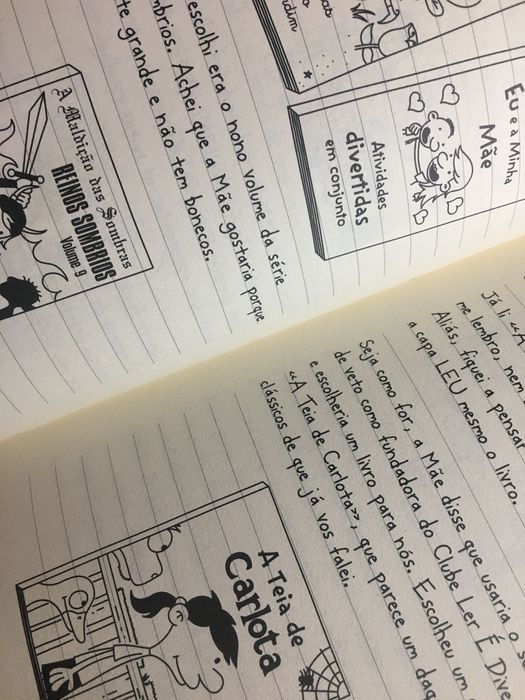 Eu e a Minha
Mãe
Atividades
divertidas
em conjunto
escolhi era o nono volume da série
Achei que a Mãe gostaria porque
grande e não tem bonecos.
A Maldição das Sombras
REINOS SOMBRIOS
Volume 9
Já li «A
me lembro, nem
Aliás, fiquei a pensar
a capa LEU mesmo o livro.
Seja como for, a Mãe disse que usaria o
de veto como fundadora do Clube Ler É
e escolheria um livro para nós. Escolheu um
«A Teia de Carlota», que parece um dos
clássicos de que já vos falei.
A Teia de
Carlota